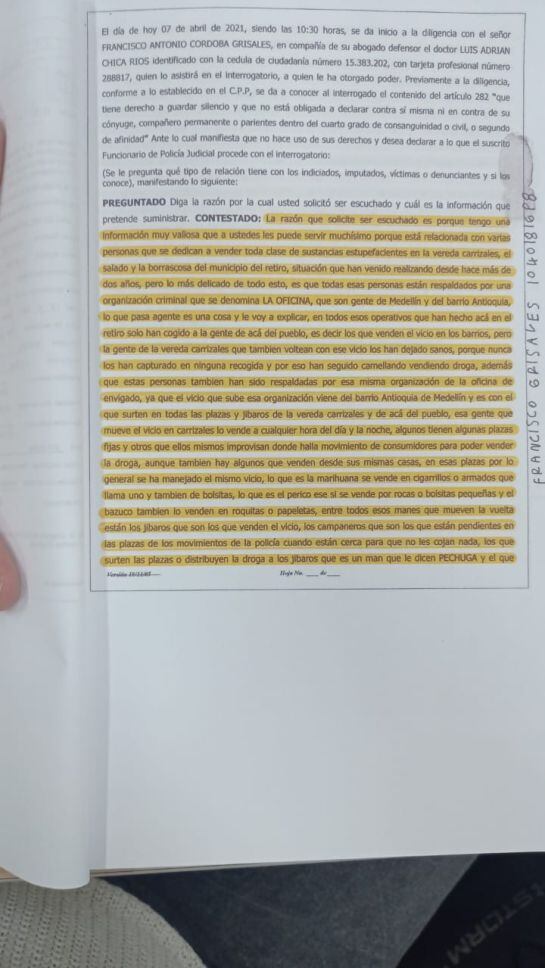 El día de hoy 07 de abril de 2021, siendo las 10:30 horas, se da inicio a la diligencia con el señor
FRANCISCO ANTONIO CORDOBA GRISALES, en compañía de su abogado defensor el doctor LUIS ADRIAN
CHICA RIOS identificado con la cedula de ciudadanía número 15.383.202, con tarjeta profesional número
288817, quien lo asistirá en el interrogatorio, a quien le ha otorgado poder. Previamente a la diligencia,
conforme a lo establecido en el C.P.P, se da a conocer al interrogado el contenido del artículo 282 "que
tiene derecho a guardar silencio y que no está obligada a declarar contra sí misma ni en contra de su
cónyuge, compañero permanente o parientes dentro del cuarto grado de consanguinidad o civil, o segundo
de afinidad" Ante lo cual manifiesta que no hace uso de sus derechos y desea declarar a lo que el suscrito
Funcionario de Policía Judicial procede con el interrogatorio:
(Se le pregunta qué tipo de relación tiene con los indiciados, imputados, víctimas o denunciantes y si los
conoce), manifestando lo siguiente:
PREGUNTADO Diga la razón por la cual usted solicitó ser escuchado y cuál es la información que
pretende suministrar. CONTESTADO: La razón que solicite ser escuchado es porque tengo una
información muy valiosa que a ustedes les puede servir muchísimo porque está relacionada con varias
personas que se dedican a vender toda clase de sustancias estupefacientes en la vereda carrizales, el
salado y la borrascosa del municipio del retiro, situación que han venido realizando desde hace más de
dos años, pero lo más delicado de todo esto, es que todas esas personas están respaldados por una
organización criminal que se denomina LA OFICINA, que son gente de Medellín y del barrio Antioquia,
lo que pasa agente es una cosa y le voy a explicar, en todos esos operativos que han hecho acá en el
retiro solo han cogido a la gente de acá del pueblo, es decir los que venden el vicio en los barrios, pero
la gente de la vereda carrizales que tambien voltean con ese vicio los han dejado sanos, porque nunca
los han capturado en ninguna recogida y por eso han seguido camellando vendiendo droga, además
que estas personas tambien han sido respaldadas por esa misma organización de la oficina de
envigado, ya que el vicio que sube esa organización viene del barrio Antioquia de Medellín y es con el
que surten en todas las plazas y jibaros de la vereda carrizales y de acá del pueblo, esa gente que
mueve el vicio en carrizales lo vende a cualquier hora del día y la noche, algunos tienen algunas plazas
fijas y otros que ellos mismos improvisan donde halla movimiento de consumidores para poder vender
la droga, aunque tambien hay algunos que venden desde sus mismas casas, en esas plazas por lo
general se ha manejado el mismo vicio, lo que es la marihuana se vende en cigarrillos o armados que
llama uno y tambien de bolsitas, lo que es el perico ese sí se vende por rocas o bolsitas pequeñas y el
bazuco tambien lo venden en roquitas o papeletas, entre todos esos manes que mueven la vuelta
están los jibaros que son los que venden el vicio, los campaneros que son los que están pendientes en
las plazas de los movimientos de la policía cuando están cerca para que no les cojan nada, los que
surten las plazas o distribuyen la droga a los jibaros que es un man que le dicen PECHUGA y el que
Hoja No. ___ de ___
FRANCISCO GRISALES 1040181698